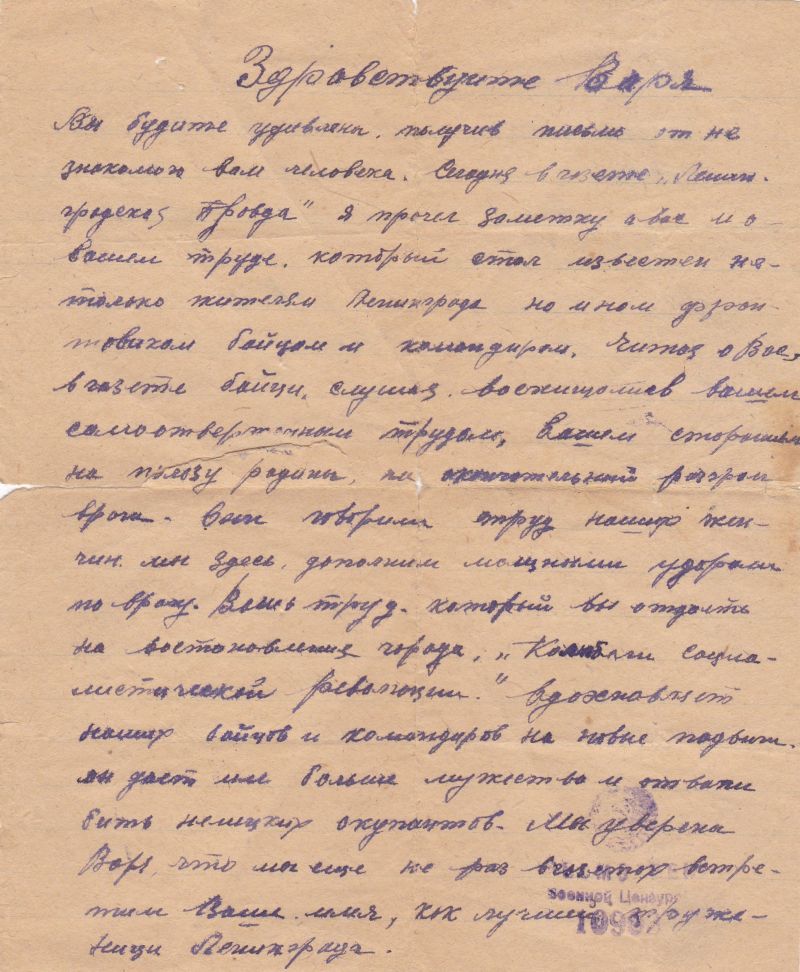 Здравствуйте Варя
Вы будите удивлены, получив письмо от не
знакомого вам человека. Сегодня в газете „Ленин-
градская Правда" я прочел заметку о вас и о
вашем труде, который стал известен не-
только жителям Ленинграда но и нам фрон-
товикам бойцам и командирам. Читая о Вас,
в газете бойцы, слушая, восхищались вашем
самоотверженным трудом, вашем стораньем
на пользу родины, на окончательный разгром
врага. Они говорили труд наших жен-
чин мы здесь, дополним мощными ударами
по врагу. Вашь труд, который вы отдаеть
на востановление города, „Колыбели социа-
листической Революции." вдохновляет
наших бойцов и командиров на новые подвиги.
он даст им больше мужества и отваги
бить немецких окупантов. Мы уверены
Варя, что мы еще не раз в газетах встре-
тим Ваше имя, как лучшей труже-
ницы Ленинграда.
Военной Цензурой